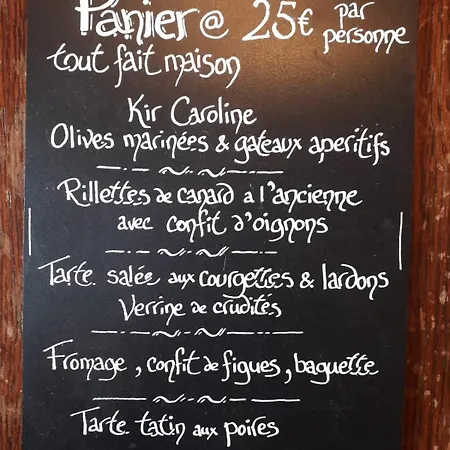 Panier @ 25€ par personne
tout fait maison
Kir Caroline
Olives marinées & gateaux aperitifs
Rillettes de canard a l'ancienne
avec confit d'oignons
Tarte salée aux courgettes & lardons
Verrine de crudités
Fromage, confit de figues, baguette
Tarte tatin aux poires